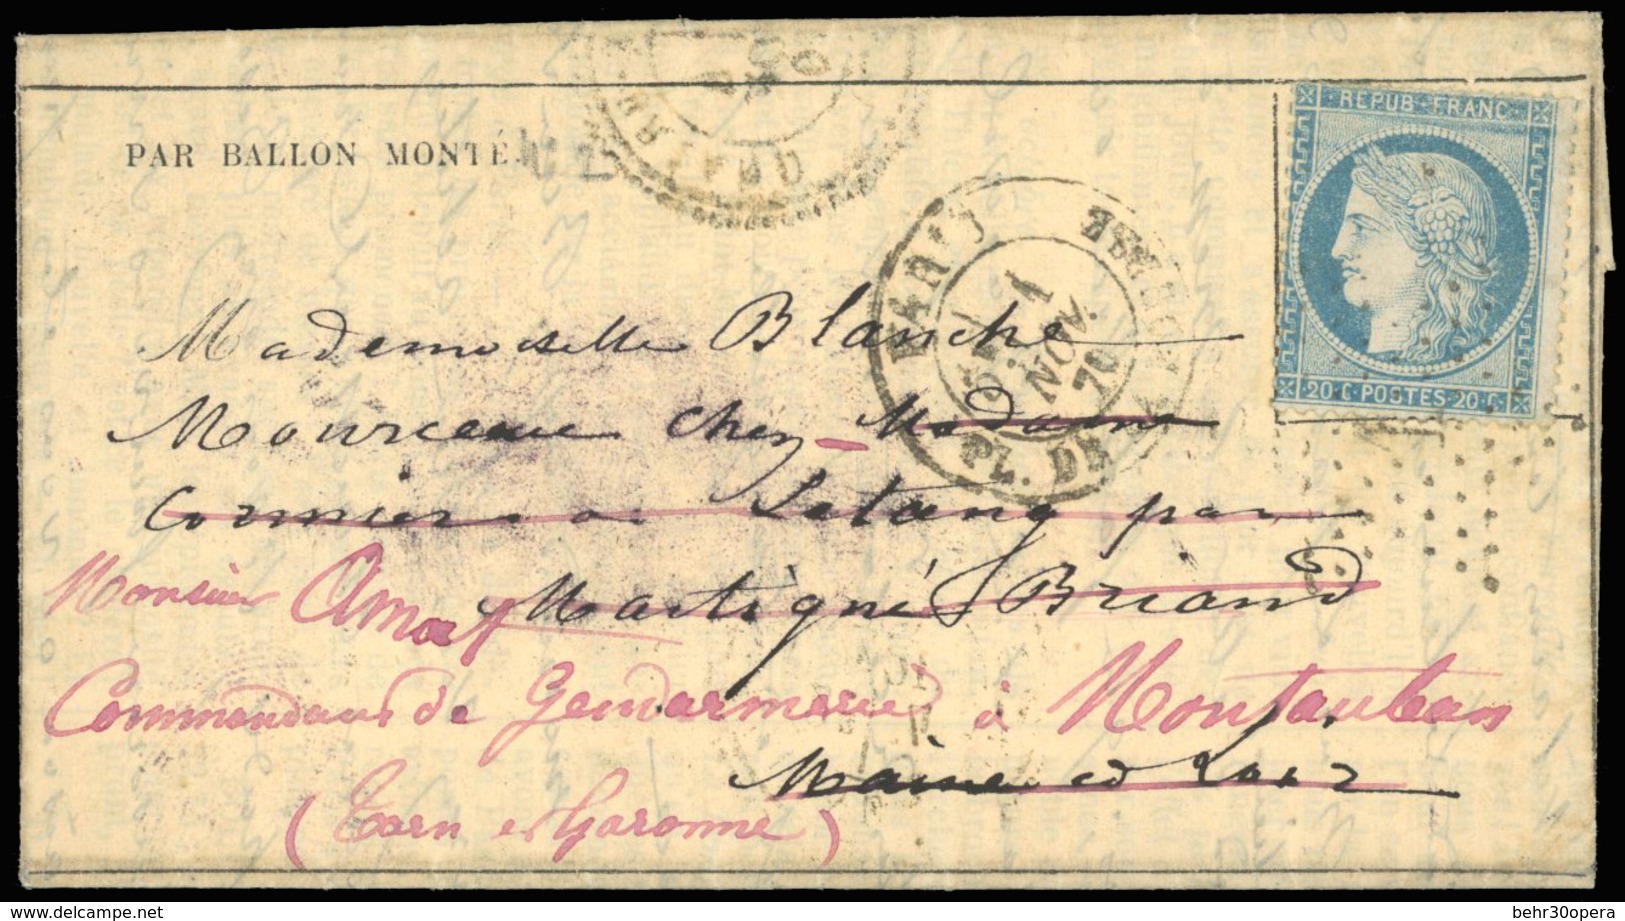 REPUB. FRANC.
20. C. POSTES. 20. C.
PAR BALLON MONTÉ.
PARIS PL. DE LA BOURSE
1
NOV.
70
Mademoiselle Blanche
Mourceau chez Madame
Cormier a Letang par
Martigné Briand
Monsieur Amat
Commandant de Gendarmerie à Montauban
Maine et Loir
(Tarn et Garonne)
www.delcampe.net
behr30opera